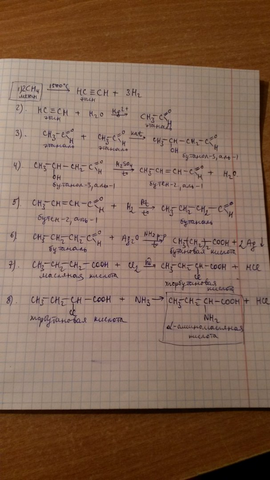 1) 2CH₄ 1500°C → HC≡CH + 3H₂
метан этин
2) HC≡CH + H₂O Hg²⁺ → CH₃-C
O
H
этин этаналь
3) CH₃-C
O
H
+ CH₃-C
O
H
→ CH₃-CH-CH₂-C
O
H
этаналь этаналь OH
бутанол-3, аль-1
4) CH₃-CH-CH₂-C
O
H
H₂SO₄ → CH₃-CH=CH-C
O
H
+ H₂O
OH
бутанол-3, аль-1 бутен-2, аль-1
5) CH₃-CH=CH-C
O
H
+ H₂ → CH₃-CH₂-CH₂-C
O
H
бутен-2, аль-1 бутаналь
6) CH₃-CH₂-CH₂-C
O
H
+ Ag₂O → CH₃CH₂CH₂-COOH + 2Ag ↓
бутаналь бутановая кислота
7) CH₃-CH₂-CH₂-COOH + Cl₂ → CH₃-CH₂-CH-COOH + HCl
Cl
масляная кислота хлорбутановая кислота
8) CH₃-CH₂-CH-COOH + NH₃ → CH₃-CH₂-CH-COOH + HCl
Cl NH₂
хлорбутановая кислота α-аминомасляная кислота